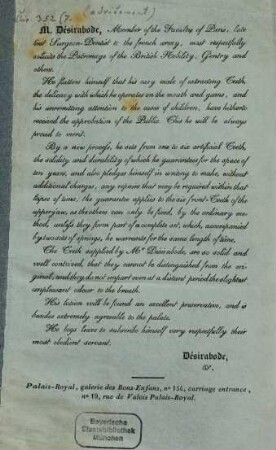 (advertisement)
352 (7.
M. Désirabode, Member of the Faculty of Paris, late
Surgeon-Dentist to the french army, most respectfully
solicits the Patronage of the British Nobility, Gentry and
others.
He flatters himself that his easy mode of extracting Teeth,
the delicacy with which he operates on the mouth and gums, and
his unremitting attention to the case of children, have hitherto
received the approbation of the Public. This he will be always
proud to merit.
By a new process, he sets from one to six artificial Teeth,
the solidity and durability of which he guarantees for the space of
ten years, and also pledges himself in writing to make, without
additional charges, any repairs that may be required within that
lapse of time; the guarantee applies to the six front-Teeth of the
upper jaw, as the others can only be fixed, by the ordinary me-
thod, unless they form part of a complete set, which, accompanied
by two sets of springs, he warrants for the same length of time.
The Teeth supplied by Mr. Désirabode, are so solid and
well contrived, that they cannot be distinguished from the ori-
ginal; and they do not impart even at a distant period the slightest
unpleasant odour to the breath.
His lotion will be found an excellent preservative, and is
besides extremely agreeable to the palate.
He begs leave to subscribe himself very respectfully their
most obedient servant.
Désirabode,
Palais-Royal, galerie des Bons-Enfans, n° 154, carriage entrance,
n° 19, rue de Valois Palais-Royal.
Bayerische
Staatsbibliothek
München